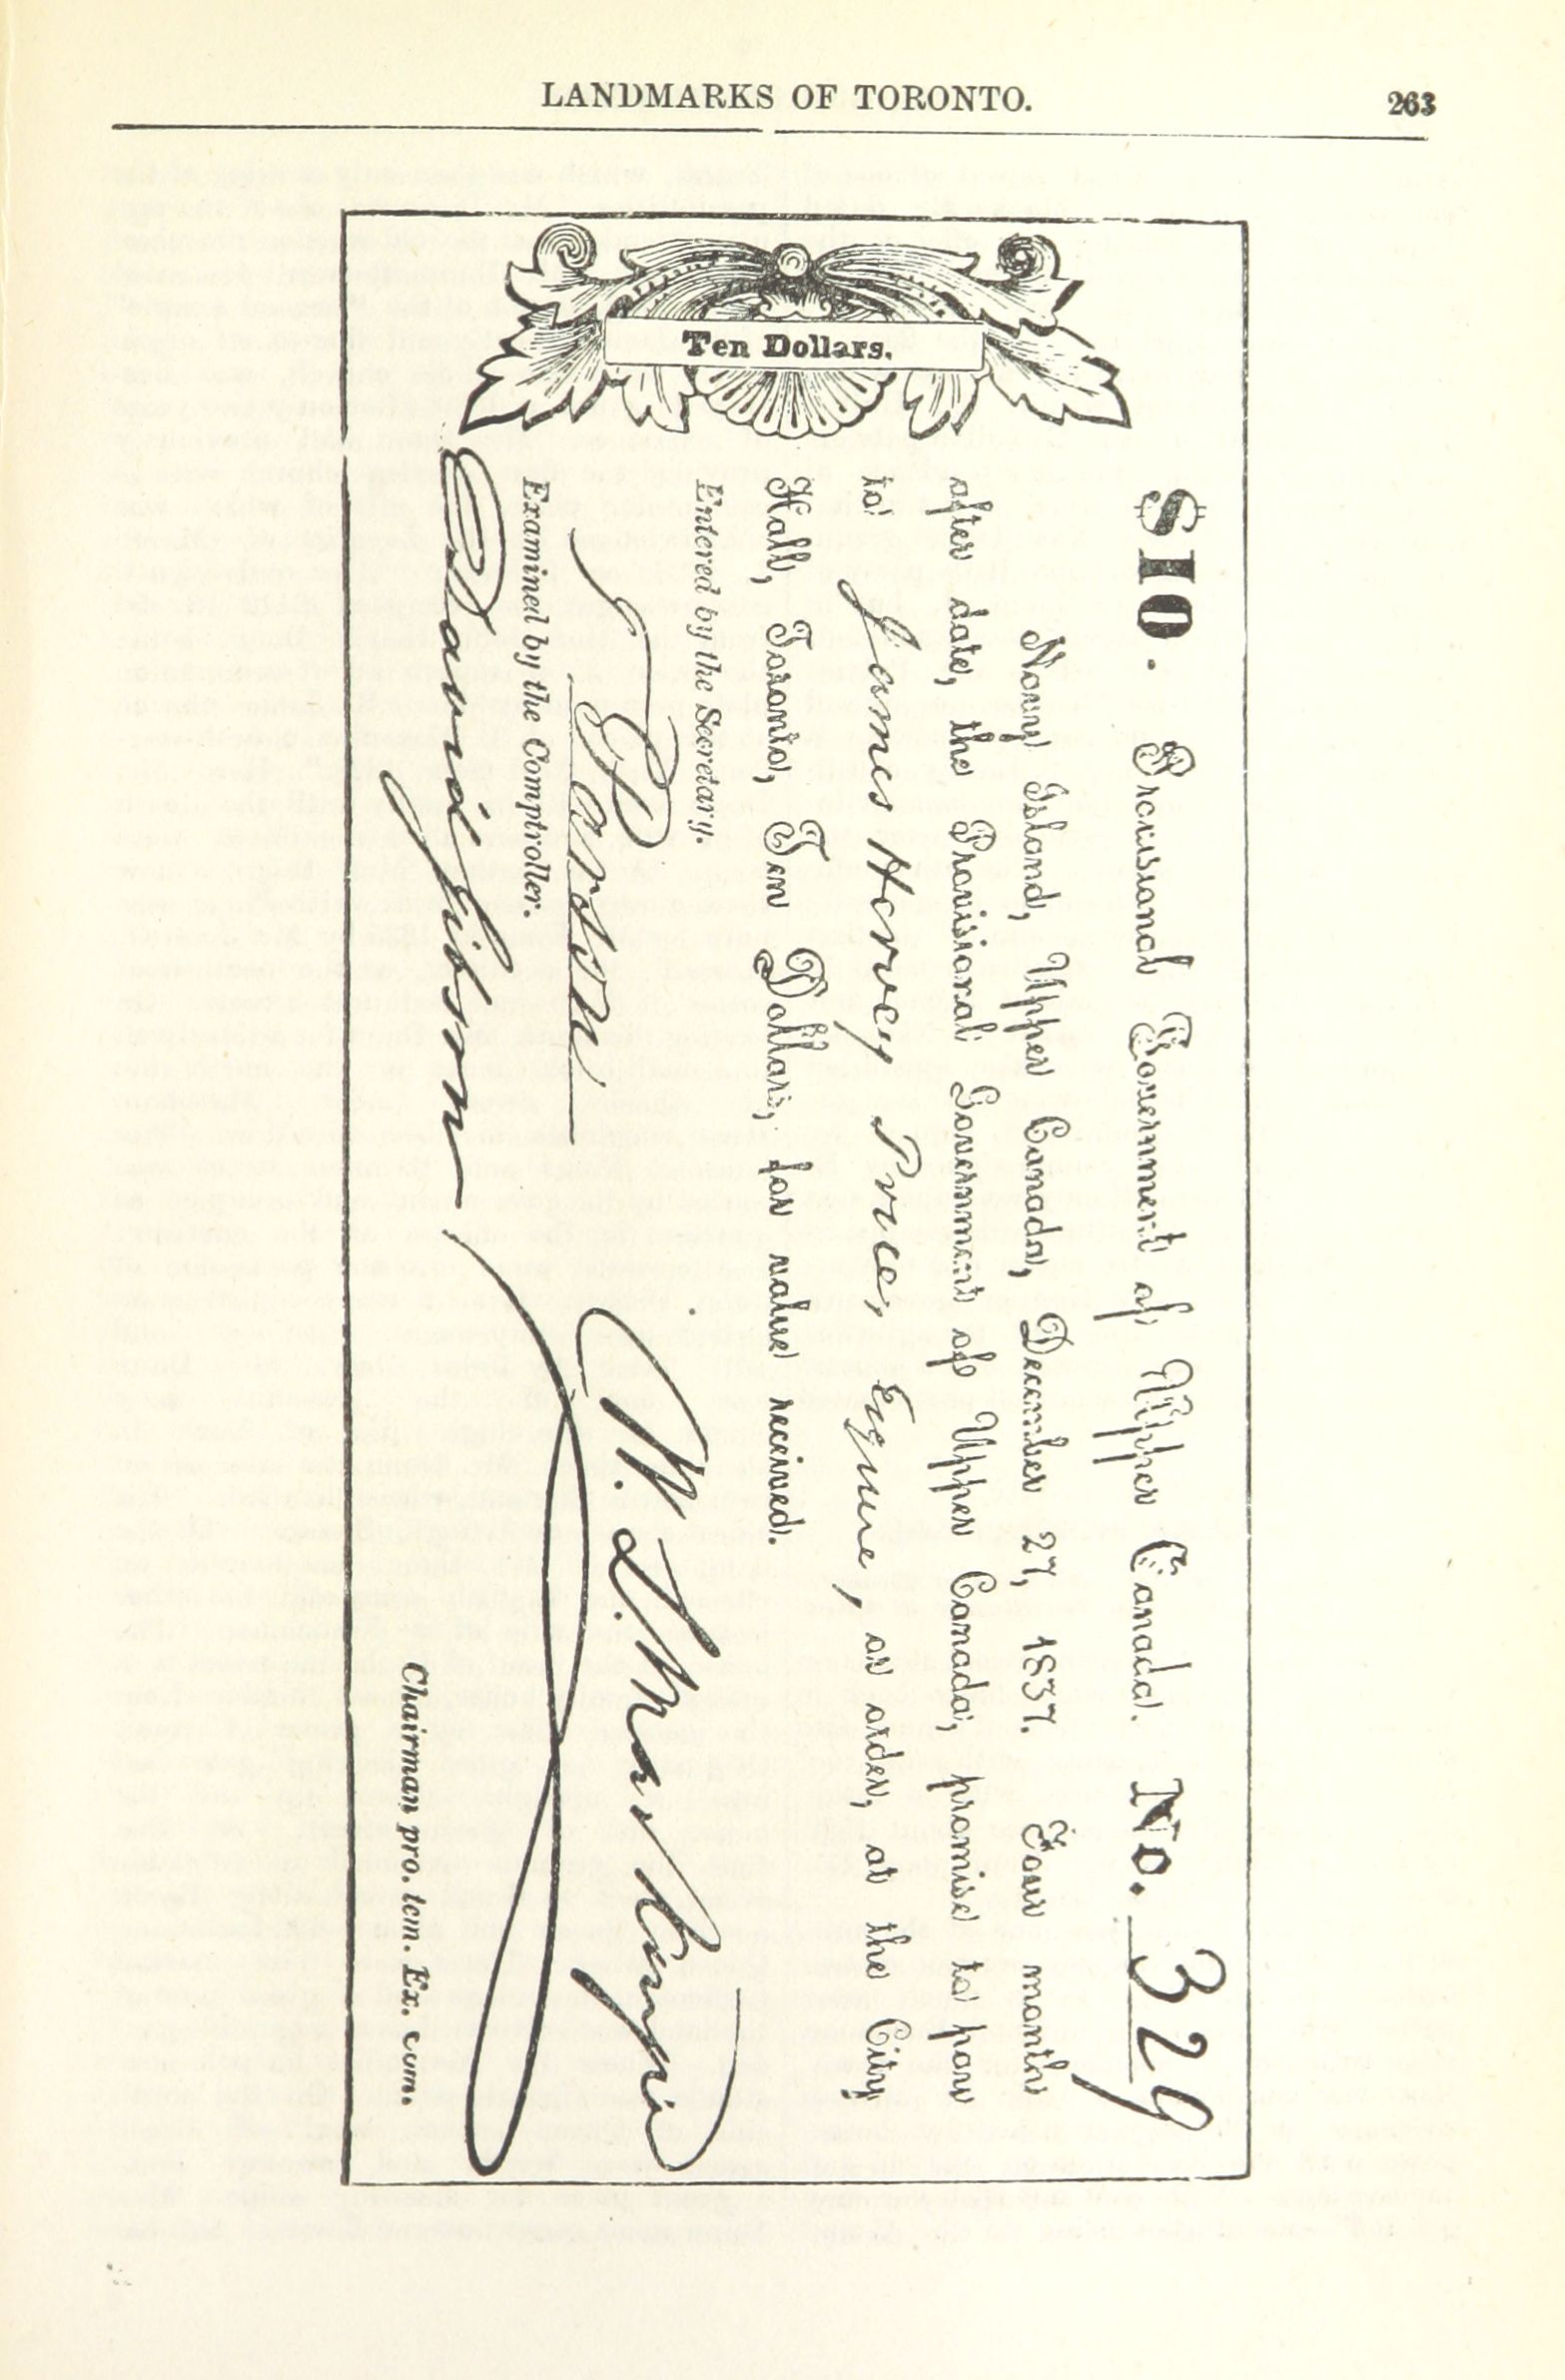 LANDMARKS OF TORONTO.
263
Ten Dollars.
$10. Provisional Government of Upper Canada. No. 329
Navy Island, Upper Canada, December 27, 1837. Four months
after date, the Provisional Government of Upper Canada, promise to pay
to James Hervey Price, Esquire, or order, at the City
Hall, Toronto, Ten Dollars, for value received.
Entered by the Secretary.
Examined by the Comptroller.
David Gibson
W. L. Mackenzie
Chairman pro. tem. Ex. com.